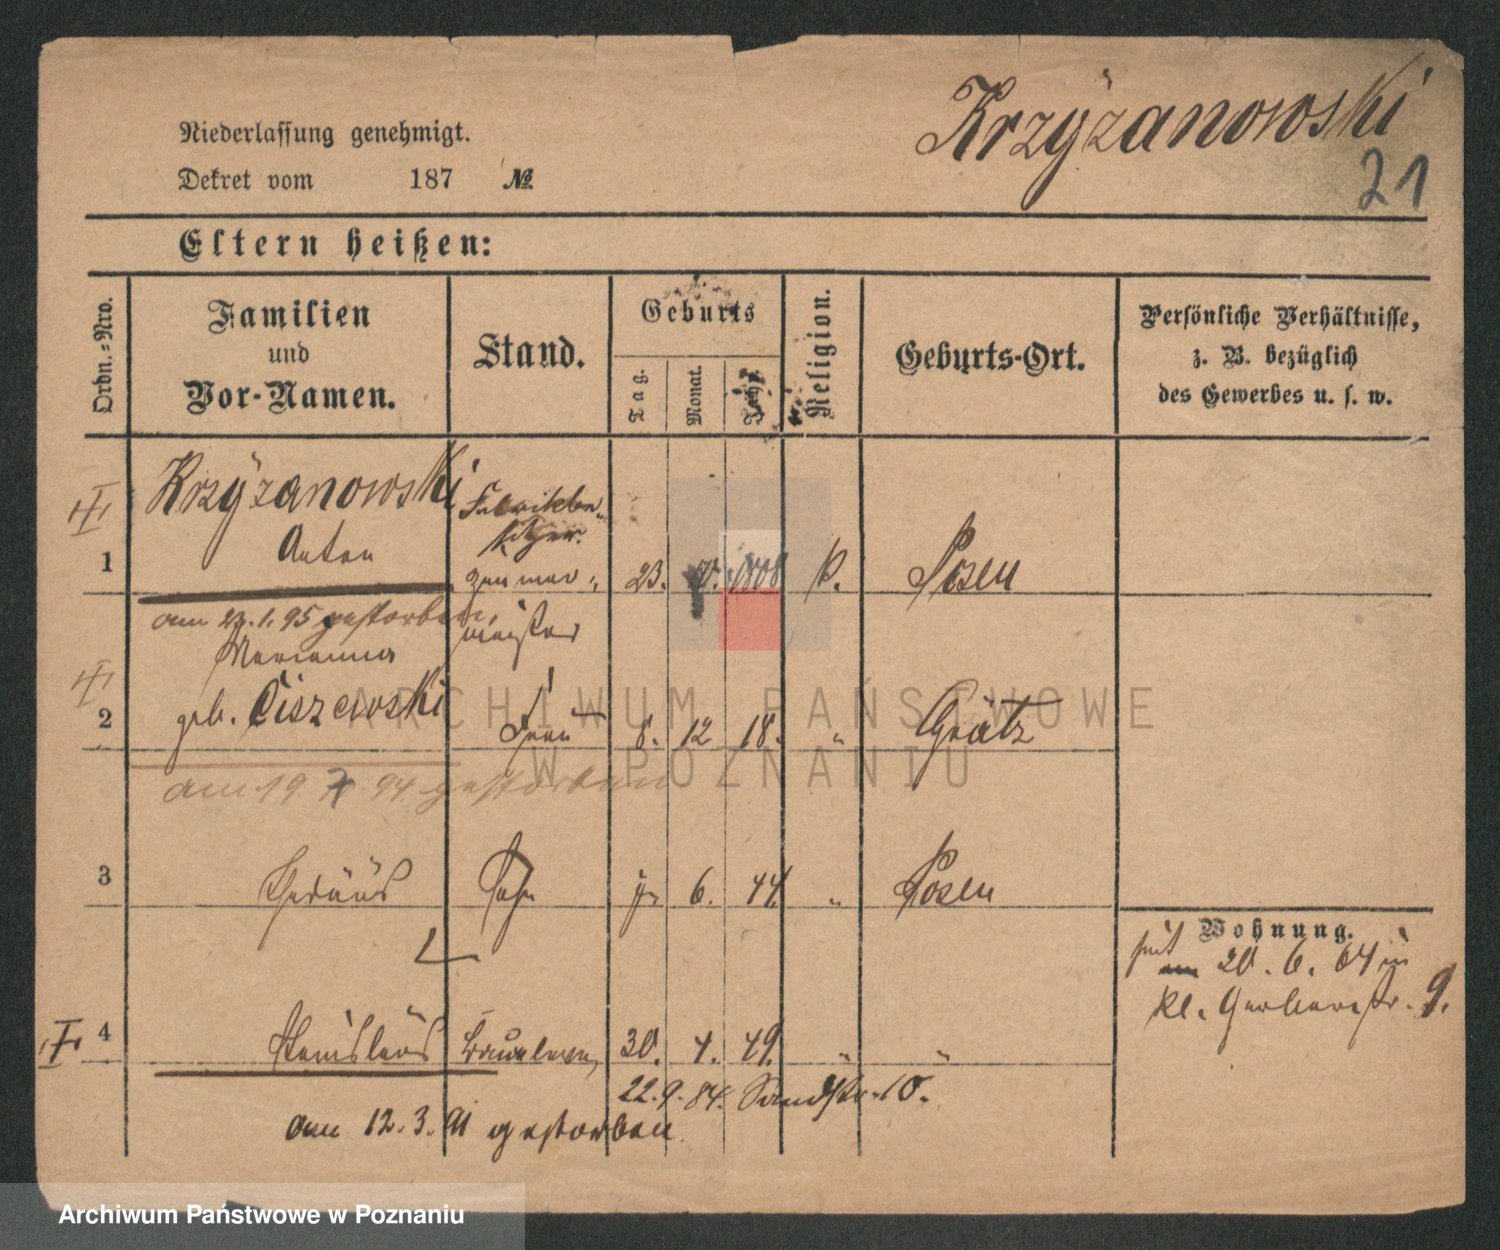 Krzyżanowski
21
Niederlassung genehmigt.
Dekret vom 187 №
Eltern heißen:
Ordn.-Nro.
Familien
und
Vor-Namen.
Stand.
Geburts
Tag.
Monat.
Jahr.
Religion.
Geburts-Ort.
Persönliche Verhältnisse,
z. B. bezüglich
des Gewerbes u. s. w.
Krzyżanowski
Anton
Fabrikbe-
sitzer.
1
23. 1808 k. Posen
am 23.1.95 gestorben.
meister
Marianna
2 geb. Ciszewski Frau 8. 12 18. " Grätz
am 19 94 gestorben
3 Sohn 6. 44. " Posen
Wohnung.
seit 20. 6. 64 in
kl. Gerberstr. 9.
4 Stanislaus 30. 4. 49. " "
22.9.84. Sandstr. 10.
am 12.3.91 gestorben
ARCHIWUM PAŃSTWOWE
W POZNANIU
Archiwum Państwowe w Poznaniu